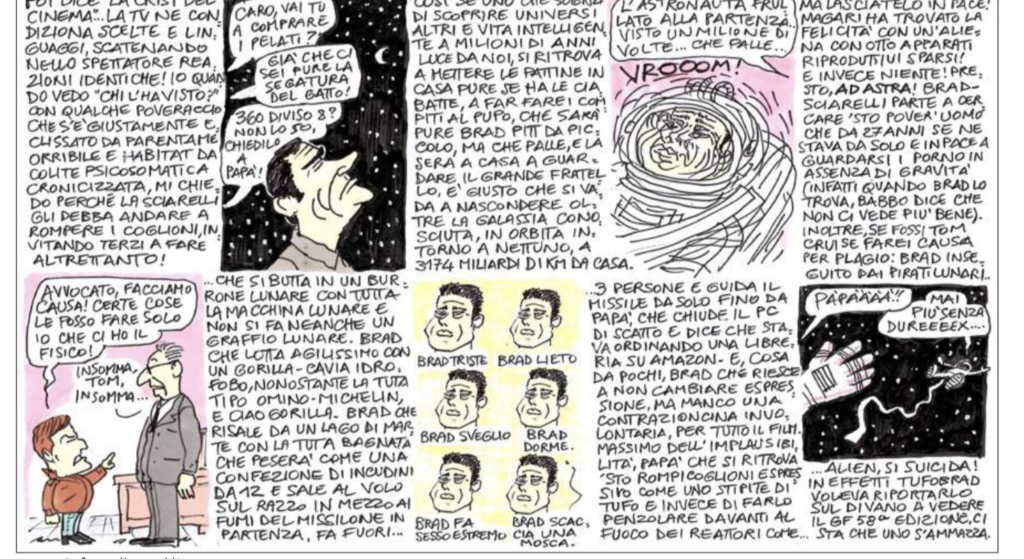 POI DICE LA CRISI DEL
CINEMA... LA TV NE CON=
DIZIONA SCELTE E LIN=
GUAGGI, SCATENANDO
NELLO SPETTATORE REA=
ZIONI IDENTICHE! IO QUAN
DO VEDO "CHI L'HA VISTO?"
CON QUALCHE POVERACCIO
CHE S'E' GIUSTAMENTE E=
CLISSATO DA PARENTAME
ORRIBILE E HABITAT DA
COLITE PSICOSOMATICA
CRONICIZZATA, MI CHIE=
DO PERCHE' LA SCIARELLI
GLI DEBBA ANDARE A
ROMPERE I COGLIONI, IN=
VITANDO TERZI A FARE
ALTRETTANTO!
CARO, VAI TU
A COMPRARE
I PELATI?
GIA' CHE CI
SEI PURE LA
SEGATURA
DEL GATTO!
360 DIVISO 8?
NON LO SO,
CHIEDILO
A
PAPA'!
DI SCOPRIRE UNIVERSI
ALTRI E VITA INTELLIGEN=
TE A MILIONI DI ANNI
LUCE DA NOI, SI RITROVA
A METTERE LE PATTINE IN
CASA PURE SE HA LE CIA=
BATTE, A FAR FARE I COM
PITI AL PUPO, CHE SARA'
PURE BRAD PITT DA PIC=
COLO, MA CHE PALLE, E LA
SERA A CASA A GUAR=
DARE IL GRANDE FRATEL
LO, E' GIUSTO CHE SI VA=
DA A NASCONDERE OL=
TRE LA GALASSIA CONO=
SCIUTA, IN ORBITA IN=
TORNO A NETTUNO, A
3174 MILIARDI DI KM DA CASA.
L'ASTRONAUTA FRUL
LATO ALLA PARTENZA...
VISTO UN MILIONE DI
VOLTE... CHE PALLE...
VROOOM!
MA LASCIATELO IN PACE!
MAGARI HA TROVATO LA
FELICITA' CON UN'ALIE=
NA CON OTTO APPARATI
RIPRODUTTIVI SPARSI!
E INVECE NIENTE! PRE=
STO, AD ASTRA! BRAD-
SCIARELLI PARTE A CER=
CARE 'STO POVER'UOMO
CHE DA 27 ANNI SE NE
STAVA DA SOLO E IN PACE A
GUARDARSI I PORNO IN
ASSENZA DI GRAVITA'
(INFATTI QUANDO BRAD LO
TROVA, BABBO DICE CHE
NON CI VEDE PIU' BENE).
INOLTRE, SE FOSSI TOM
CRUISE FAREI CAUSA
PER PLAGIO: BRAD INSE=
GUITO DAI PIRATI LUNARI..
AVVOCATO, FACCIAMO
CAUSA! CERTE COSE
LE POSSO FARE SOLO
IO CHE CI HO IL
FISICO!
INSOMMA,
TOM,
INSOMMA...
...CHE SI BUTTA IN UN BUR=
RONE LUNARE CON TUTTA
LA MACCHINA LUNARE E
NON SI FA NEANCHE UN
GRAFFIO LUNARE. BRAD
CHE LOTTA AGILISSIMO CON
UN GORILLA-CAVIA IDRO=
FOBO, NONOSTANTE LA TUTA
TIPO OMINO-MICHELIN,
E CIAO GORILLA. BRAD CHE
RISALE DA UN LAGO DI MAR=
TE CON LA TUTA BAGNATA
CHE PESERA' COME UNA
CONFEZIONE DI INCUDINI
DA 12 E SALE AL VOLO
SUL RAZZO IN MEZZO AI
FUMI DEL MISSILONE IN
PARTENZA, FA FUORI...
BRAD TRISTE
BRAD LIETO
BRAD SVEGLIO
BRAD
DORME.
BRAD FA
SESSO ESTREMO
BRAD SCAC=
CIA UNA
MOSCA.
..3 PERSONE E GUIDA IL
MISSILE DA SOLO FINO DA
PAPA', CHE CHIUDE IL PC
DI SCATTO E DICE CHE STA=
VA ORDINANDO UNA LIBRE=
RIA SU AMAZON. E, COSA
DA POCHI, BRAD CHE RIESCE
A NON CAMBIARE ESPRES
SIONE, MA MANCO UNA
CONTRAZIONCINA INVO=
LONTARIA, PER TUTTO IL FILM.
MASSIMO DELL'IMPLAUSIBI=
LITA', PAPA' CHE SI RITROVA
'STO ROMPICOGLIONI ESPRES
SIVO COME UNO STIPITE DI
TUFO E INVECE DI FARLO
PENZOLARE DAVANTI AL
FUOCO DEI REATTORI COME...
PAPAAAA'!!
MAI
PIU' SENZA
DUREEEEX...
...ALIEN, SI SUICIDA!
IN EFFETTI TUFOBRAD
VOLEVA RIPORTARLO
SUL DIVANO A VEDERE
IL GF 58ª EDIZIONE, CI
STA CHE UNO S'AMMAZZA.